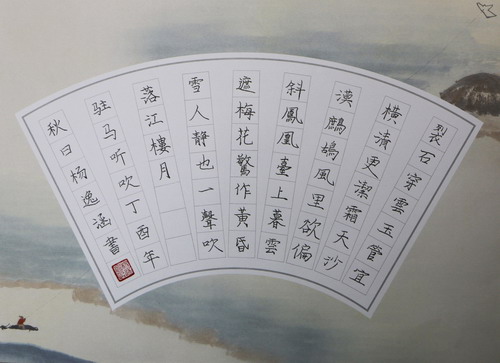 裂石穿雲玉管宜
橫清更潔霜天沙
漠鷓鴣風里欲偏
斜鳳凰臺上暮雲
遮梅花驚作黃昏
雪人靜也一聲吹
落江樓月
驻马听吹丁酉年
秋日杨逸涵書